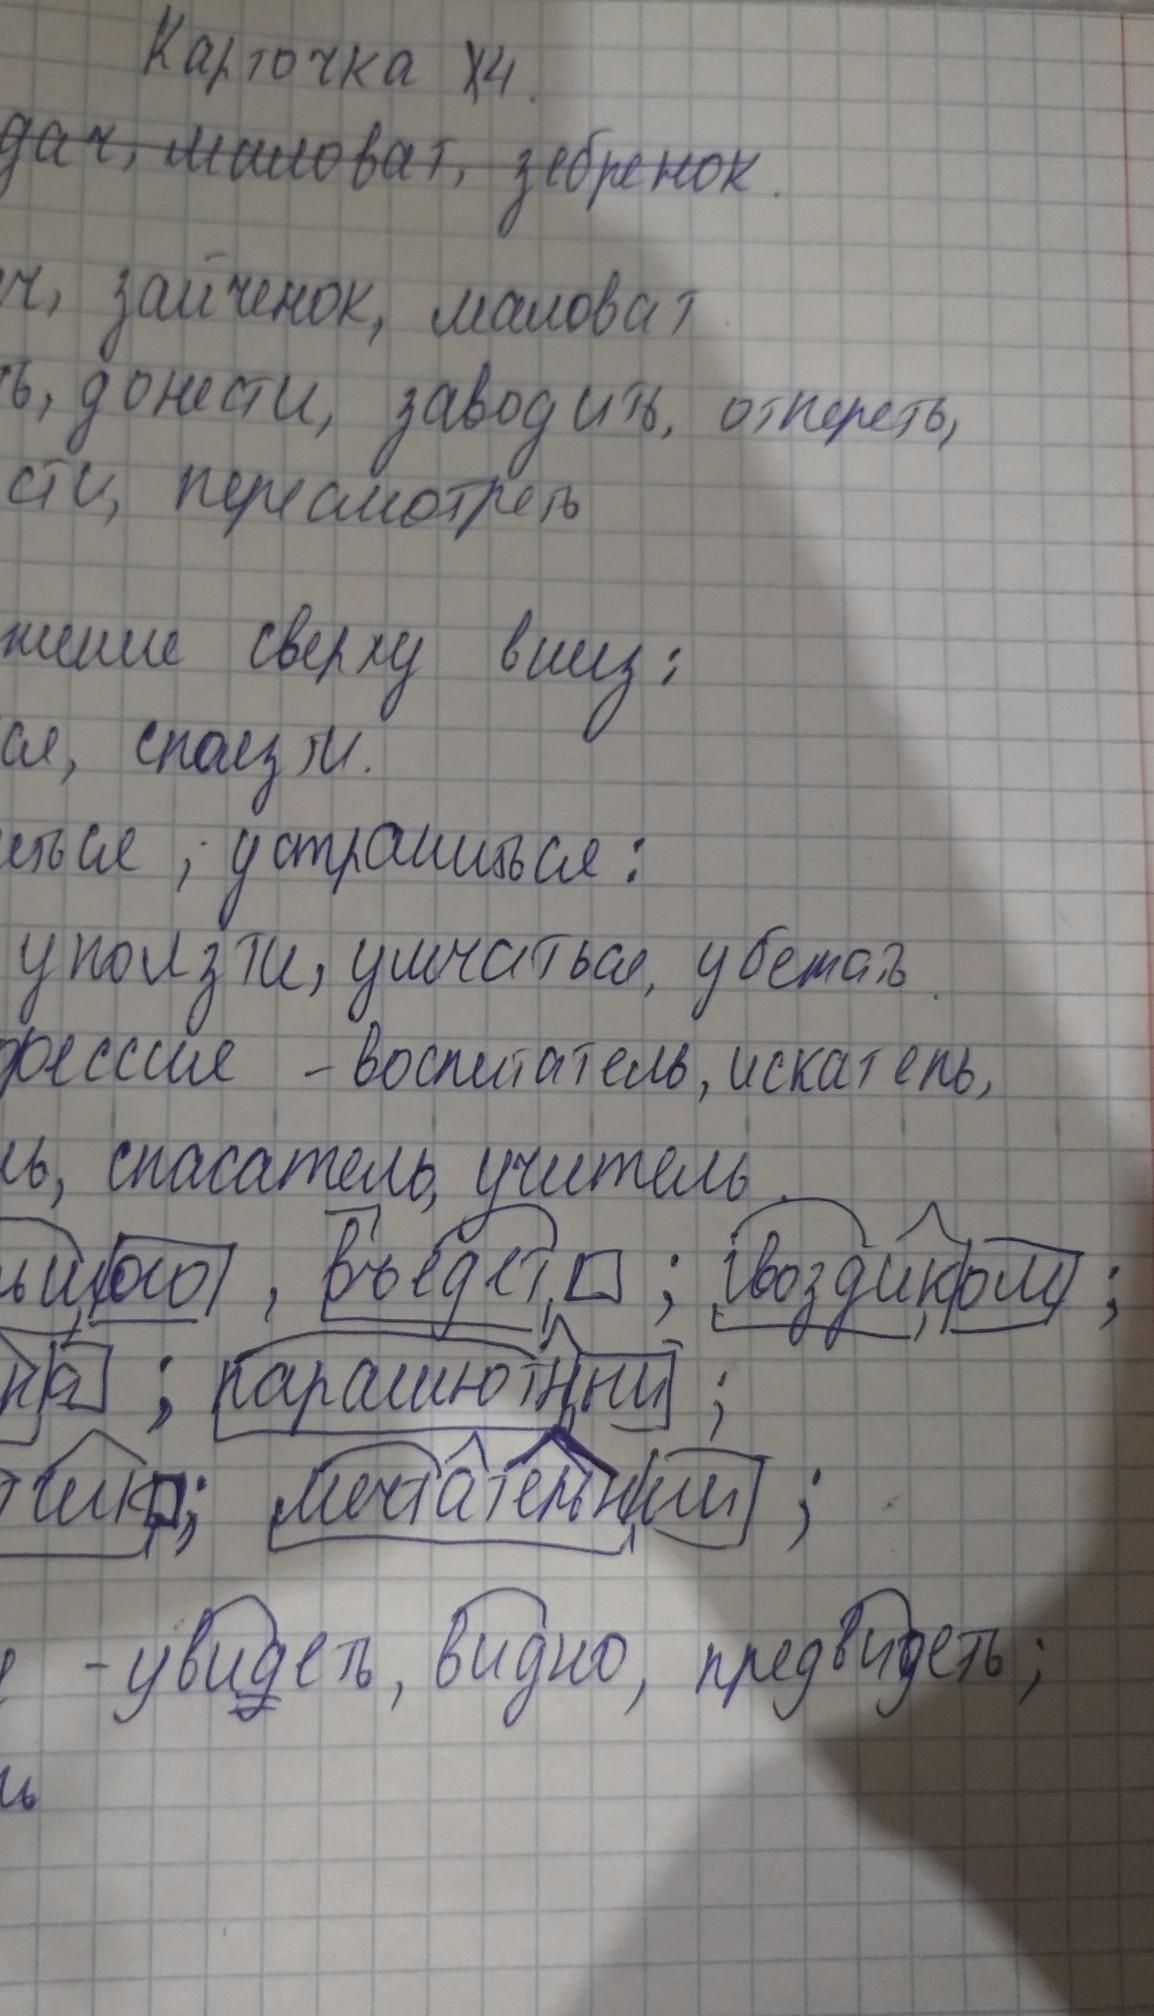 Карточка №4.
дач, маловат, зебренок.
ч, зайченок, маловат
ть, донести, заводить, отпереть,
сти, пересмотреть
жение сверху вниз:
ся, сползти.
ться, устрашиться:
уползти, умчаться, убежать.
фессия – воспитатель, искатель,
ль, спасатель, учитель.
ого, въедет; гвоздиком;
на; парашютный;
тчик; мечтательный;
- увидеть, видно, предвидеть;
ль